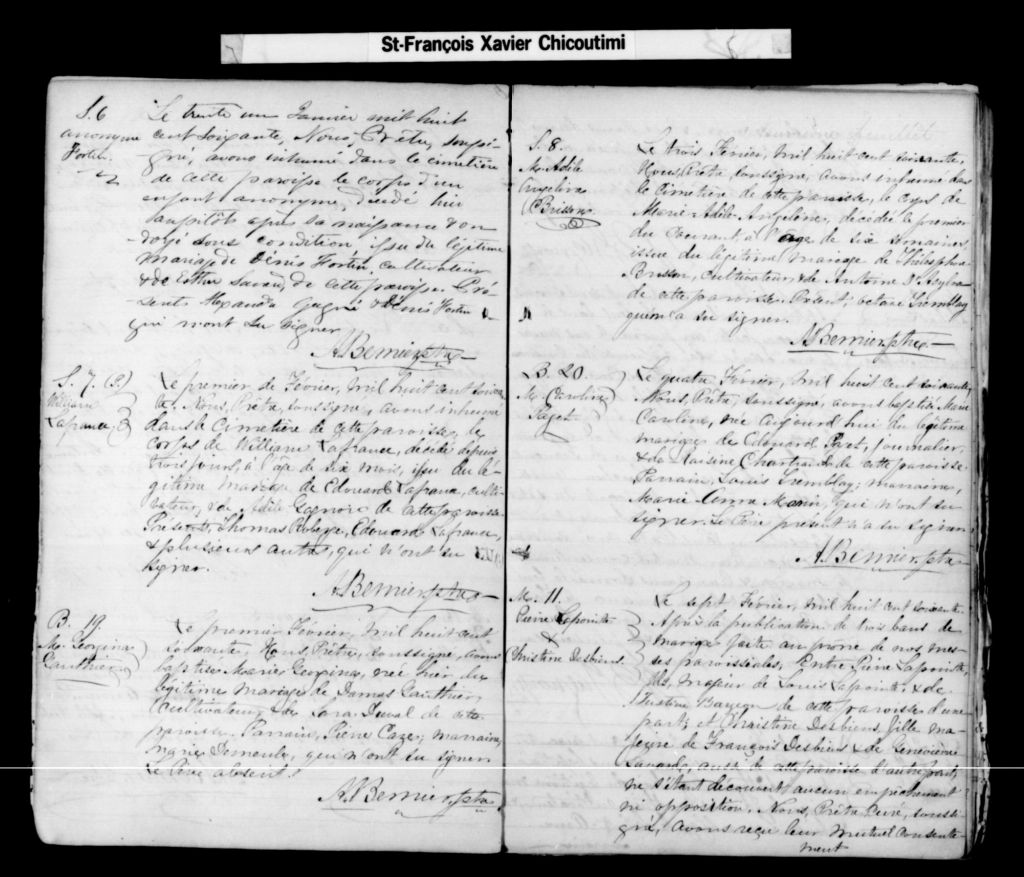 St-François Xavier Chicoutimi
S. 6
anonyme
Fortin
Le trente un Janvier mil huit
cent soixante, Nous, Prêtre, soussi-
gné, avons inhumé dans le cimetière
de cette paroisse le corps d'un
enfant anonyme, décédé hier
aussitôt après sa naissance & on-
doyé sous condition, issu du légitime
mariage de Dénis Fortin, cultivateur
& de Esther Savard, de cette paroisse. Pré-
sents Alexandre Gagné & Dénis Fortin
qui n'ont su signer
A Bernier, ptre
S. 7. (S.)
William
Lafrance
Le premier de Février, mil huit cent soixan-
te, Nous, Prêtre, soussigné, avons inhumé
dans le cimetière de cette paroisse, le
corps de William Lafrance, décédé depuis
trois jours, à l'âge de six mois, issu du lé-
gitime mariage de Edouard Lafrance, culti-
vateur, & de Adile de cette paroisse
Présents, Thomas Roberge, Edouard Lafrance,
& plusieurs autres, qui n'ont su
signer.
A Bernier, ptre
B. 19
M. Georgina
Gauthier
Le premier Février, mil huit cent
soixante, Nous, Prêtre, soussigné, avons
baptisé Marie Georgina, née hier du
légitime mariage de Damas Gauthier,
cultivateur & de Sara Duval de cette
paroisse. Parrain, Pierre Caze; marraine,
Marie Demeule, qui n'ont su signer
Le Père absent.
A. Bernier, ptre
S. 8.
M. Adile
Angelina
Brisson
Le trois Février, mil huit cent soixante,
Nous, Prêtre, soussigné, avons inhumé dans
le Cimetière de cette paroisse, le corps de
Marie Adile Angeline, décédée le premier
du Courant, à l'âge de six semaines
issue du légitime mariage de Théophile
Brisson, cultivateur, & de Antoine D'Asylva
de cette paroisse. Présent, Octave Tremblay
qui n'a su signer.
A Bernier, ptre
B. 20.
M. Caroline
Paget
Le quatre Février, mil huit cent soixante,
Nous, Prêtre, soussigné, avons baptisé Marie
Caroline, née aujourd'hui du légitime
mariage de Edouard Paget, journalier,
& de Chartrand de cette paroisse.
Parrain, Louis Tremblay; marraine,
Marie Anne Morin, qui n'ont su
signer. Le Père présent n'a su signer
A Bernier, ptre
M. 11.
Pierre Lapointe
&
Christine Desbiens.
Le sept Février, mil huit cent soixante
Après la publication de trois bans de
mariage faite au prône de nos mes-
ses paroissiales, Entre Pierre Lapointe,
fils majeur de Louis Lapointe & de
de cette paroisse d'une
part; et Christine Desbiens, fille ma-
jeure de François Desbiens & de Geneviève
Savard, aussi de cette paroisse d'autre part,
ne s'étant découvert aucun empêchement
ni opposition, Nous, Prêtre Curé, soussi-
gné, avons reçu leur mutuel consente-
ment